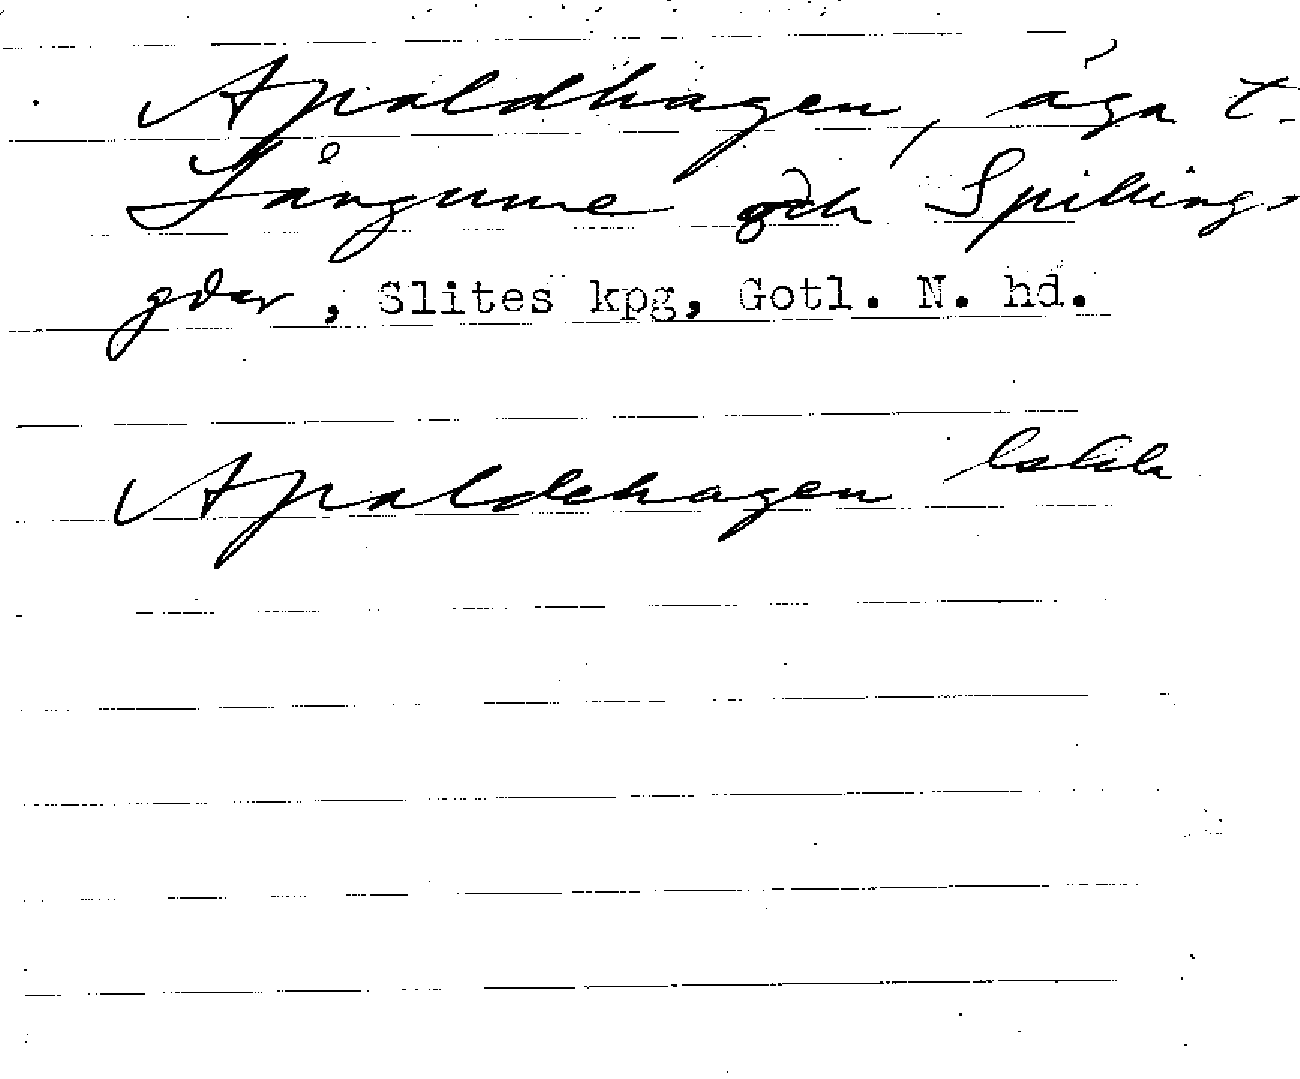 Apaldhagen, äga t.
Långume och Spillings
gdar, Slites kpg, Gotl. N. hd.
Apaldehagen